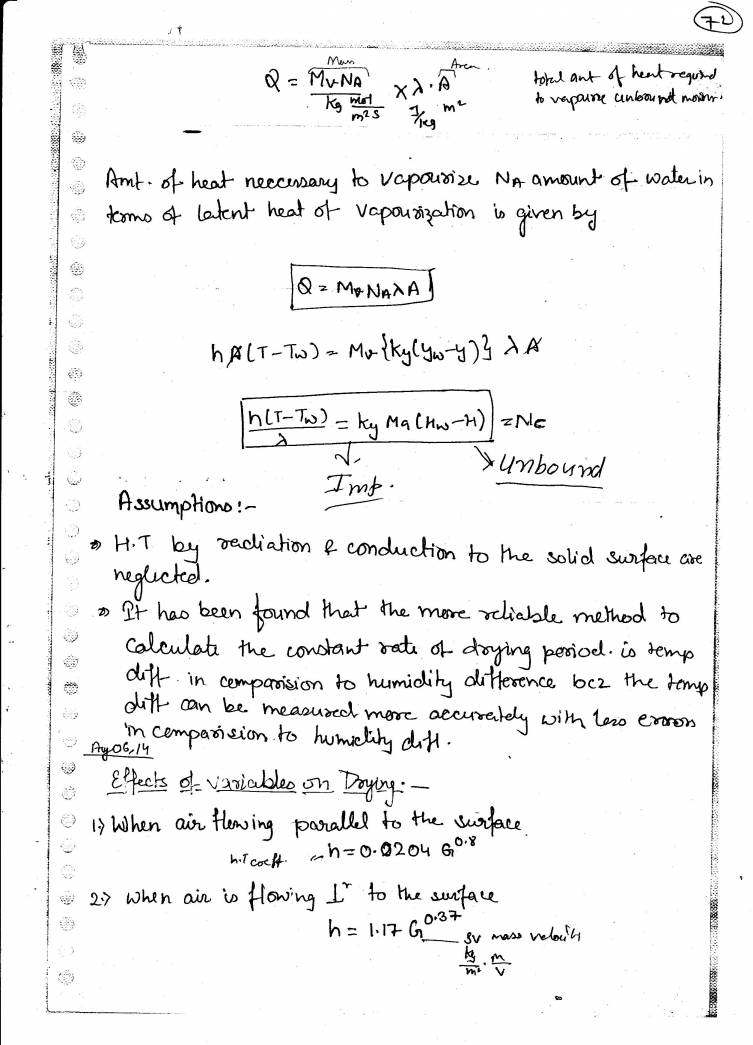 72
Q = Mv·NA × λ · A
Area
kg mol/m²s J/kg m²
total amt of heat required
to vapourise unbound moistr.
Amt. of heat neccessary to vapourize NA amount of water in
terms of latent heat of vapourization is given by
Q = Mv NA λ A
h A (T-Tw) = Mv {ky (yw-y)} λ A
h(T-Tw)/λ = ky Ma (Hw-H) = Nc
Imp. Unbound
Assumptions:-
⇒ H.T by radiation & conduction to the solid surface are
neglected.
⇒ It has been found that the more reliable method to
calculate the constant rate of drying period. is temp
diff. in comparision to humidity difference bcz the temp
diff can be measured more accurately with less errors
in comparision to humidity diff.
Aug 06, 14
Effects of variables on Drying:-
1) When air flowing parallel to the surface
h.T coeff. h = 0.0204 G^0.8
2) When air is flowing ⊥r to the surface
h = 1.17 G^0.37
ρv mass velocity
kg/m² · m